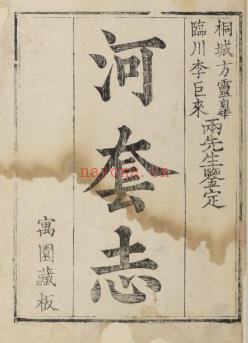 桐城方靈皋
臨川李巨來
兩先生鑒定
河套志
寓園藏板